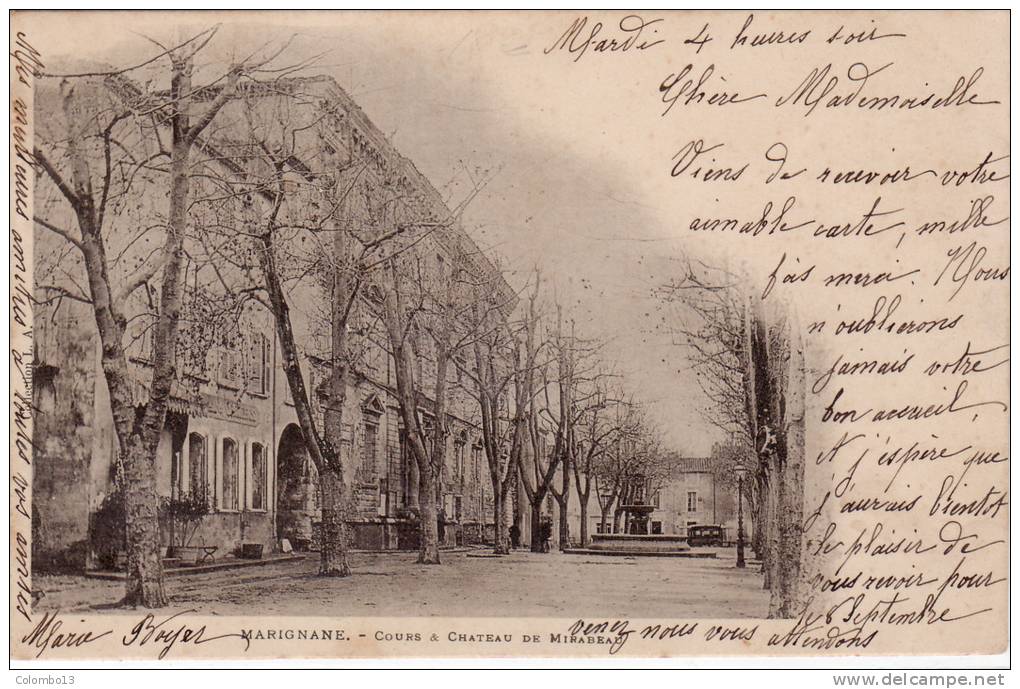 Mardi 4 heures soir
Chère Mademoiselle
Viens de recevoir votre
aimable carte, mille
fois merci. Nous
n'oublierons
jamais votre
bon accueil,
et j'espère que
j'aurais bientot
le plaisir de
vous revoir pour
le 8 Septembre
venez nous vous attendons
Marie Boyer
Mes meilleures amitiés à toutes vos amies
MARIGNANE. - COURS & CHATEAU DE MIRABEAU
Colombo13
www.delcampe.net